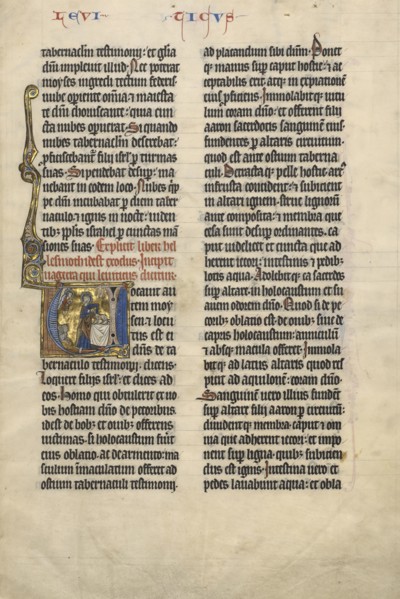 LEVI TICUS
tabernaclm testimonij: et glia
dni implevit illud. Nec poterat
moyses ingredi tectum federis
nube operiente omnia: et maiesta
te dni choruscante: quia cun
cta nubes operuerat. Si quando
nubes tabernaclm deserebat:
proficiscebant filij isrl per turmas
suas. Si pendebat desup: ma
nebant in eodem loco. Nubes qpp
pe dni incubabat per diem taber
naculo: et ignis in nocte: viden
tib pplis israhel per cunctas man
siones suas. Explicit liber hel
lesmoth idest exodus. Incipit
vagecra qui leviticus dicitur.
Vocavit au
tem moy
sen et locu
tus est ei
dns de ta
bernaculo testimonij dicens.
Loquere filijs isrl: et dices ad
eos. Homo qui obtulerit ex vo
bis hostiam dno de pecoribus
idest de bobus et ovibus offerens
victimas: si holocaustum fuerit
eius oblatio ac de armento: ma
sculum inmaculatum offeret ad
ostium tabernaculi testimonij.
ad placandum sibi dnm. Ponet
q manus sup caput hostie: et ac
ceptabilis erit atq in expiationem
eius proficiens. Immolabitq vitu
lum coram dno: et offerent filij
aaron sacerdotis sanguinem eius
fundentes per altaris circuitum
quod est ante ostium taberna
culi. Detractaq pelle hostie: artus
in frusta concident: et subicient
in altari ignem: strue lignorum
ante composita: et membra que
cesa sunt desup ordinantes. ca
put videlicet et cuncta que ad
herent iecori: intestinis et pedib
lotis aqua. Adolebitq ea sacerdos
sup altare in holocaustum et su
avem odorem dno. Quod si de pe
corib oblatio est: de ovibus sive de
capris holocaustum: anniculum
et absq macula offeret. Immola
bitq ad latus altaris quod res
picit ad aquilonem: coram dno.
Sanguinem vero illius fundent
sup altare filij aaron per circuitum:
dividentq membra: caput et om
nia que adherent iecori: et impo
nent sup ligna: quibus subicien
dus est ignis. Intestina vero et
pedes lavabunt aqua: et obla